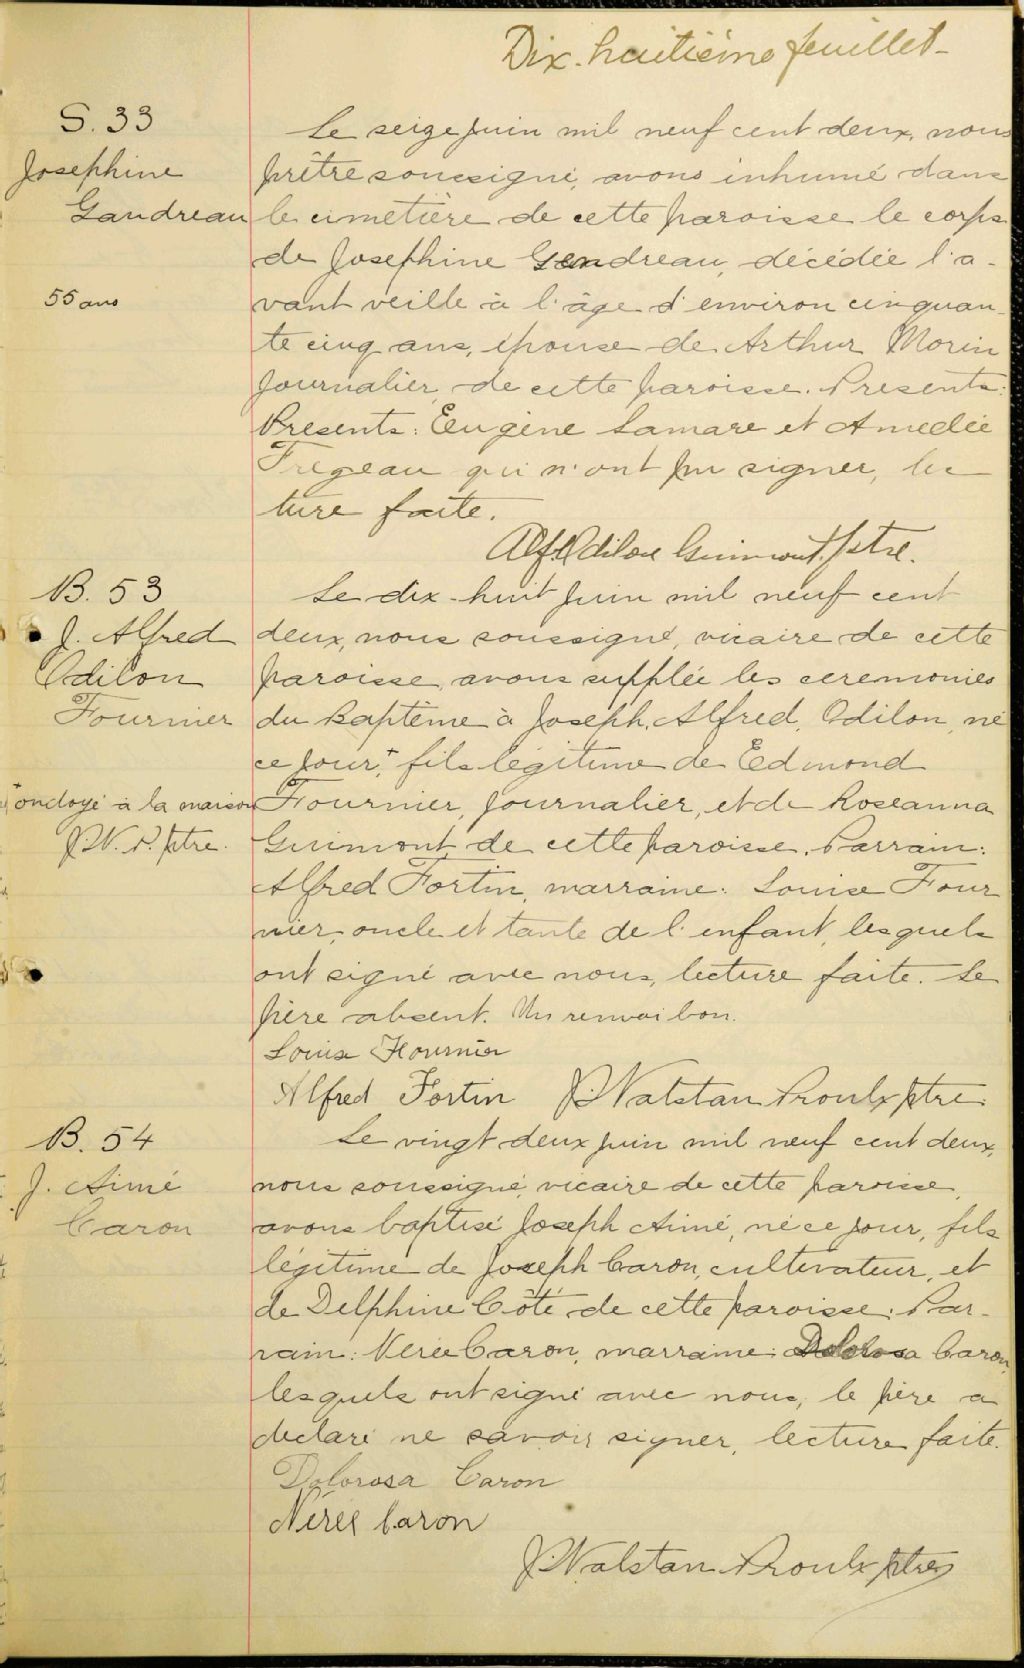 Dix-huitième feuillet-
S. 33
Josephine
Gaudreau
55 ans
Le seize juin mil neuf cent deux, nous
prêtre soussigné, avons inhumé dans
le cimetière de cette paroisse le corps
de Josephine Gendreau, décédée l'a-
vant veille à l'âge d'environ cinquan-
te cinq ans, épouse de Arthur Morin
journalier, de cette paroisse. Presents:
Presents: Eugène Lamare et Amedée
Fregeau qui n'ont pu signer, lec
ture faite.
Alf. Odilon Guimont, ptre.
B. 53
J. Alfred
Odilon
Fournier
+ ondoyé à la maison
J.N.P. ptre.
Le dix-huit juin mil neuf cent
deux, nous soussigné, vicaire de cette
paroisse, avons supplée les ceremonies
du Baptême à Joseph, Alfred, Odilon, né
ce jour,+ fils légitime de Edmond
Fournier, journalier, et de Roseanna
Guimont de cette paroisse. Parrain:
Alfred Fortin, marraine: Louise Four
nier, oncle et tante de l'enfant, lesquels
ont signé avec nous, lecture faite. Le
père absent. Un renvoi bon.
Louise Fournier
Alfred Fortin J. Nalstan Proulx ptre.
B. 54
J. Aimé
Caron
Le vingt deux juin mil neuf cent deux,
nous soussigné, vicaire de cette paroisse,
avons baptisé Joseph Aimé, né ce jour, fils
légitime de Joseph Caron, cultivateur, et
de Delphine Côté de cette paroisse. Par-
rain: Nerée Caron, marraine: Dolorosa Caron,
lesquels ont signé avec nous, le père a
declaré ne savoir signer, lecture faite.
Dolorosa Caron
Nérée Caron
J. Nalstan Proulx ptre